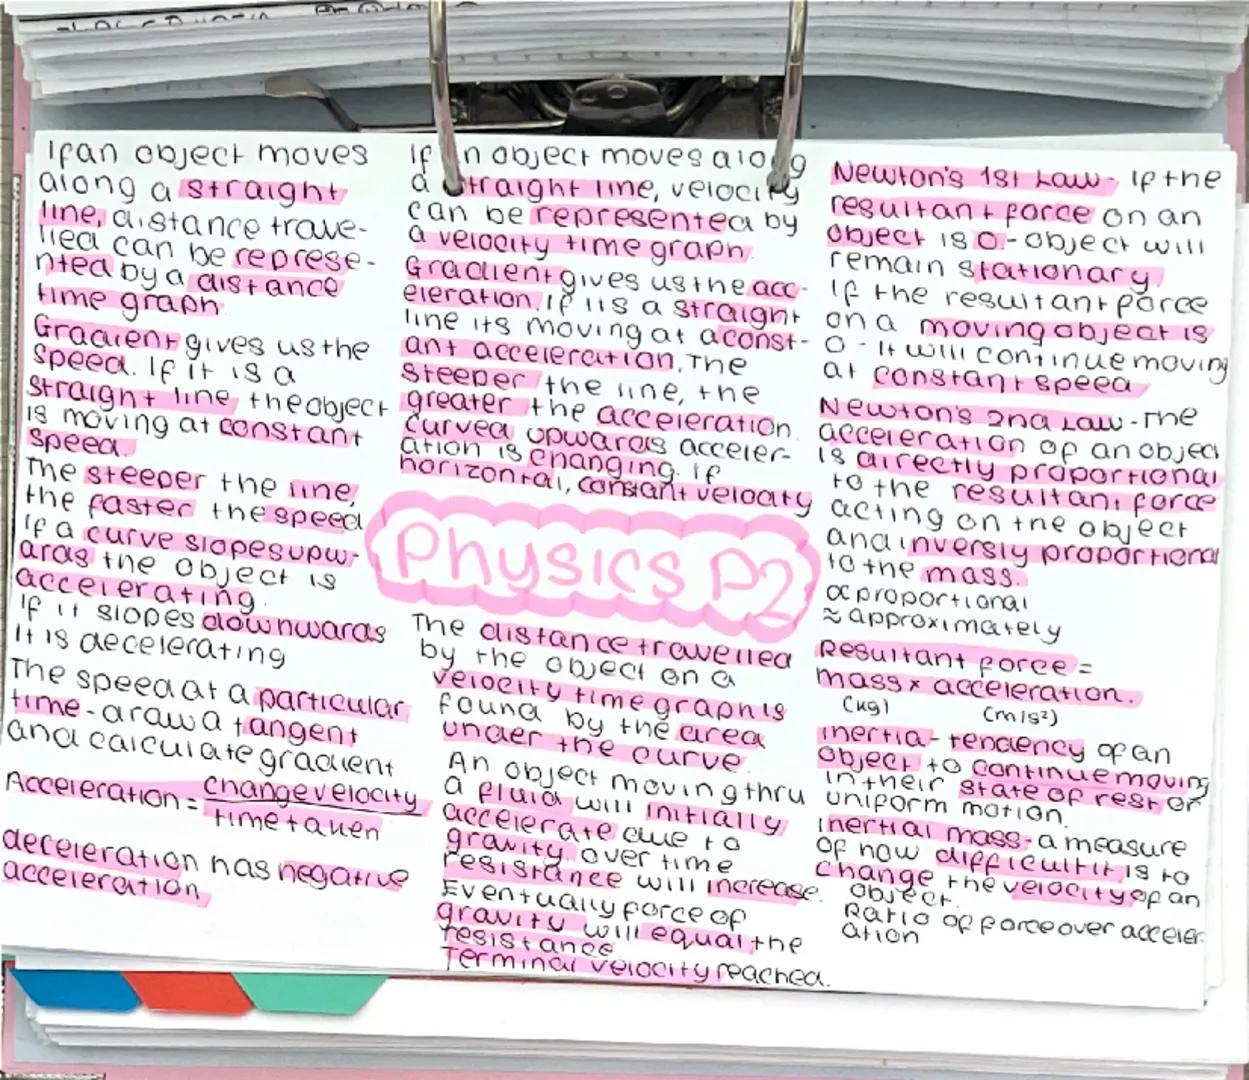 If an object moves
along a straight
line, distance trave-
lled can be represe-
nted by a distance
time graph
Gradient gives us the
speed. If it is a
straight line the object
is moving at constant
speed.
The steeper the line,
the faster the speed
If a curve slopes upw-
ards the object is
accelerating.
If it slopes downwards
it is decelerating
The speed at a particular
time - draw a tangent
and calculate gradient
Acceleration = change velocity
time taken
deceleration has negative
acceleration
If an object moves along
a straight line, velocity
can be represented by
a velocity time graph.
Gradient gives us the acc-
eleration. If its a straight
line its moving at a const-
ant acceleration. The
steeper the line, the
greater the acceleration.
Curved upwards acceler-
ation is changing. If
horizontal, constant velocity
Physics P2
The distance travelled
by the object on a
velocity time graph is
found by the area
under the curve.
An object moving thru
a fluid will initially
accelerate due to
gravity. over time
resistance will increase.
Eventually force of
gravity will equal the
resistance
Terminal velocity reached.
Newton's 1st Law - If the
resultant force on an
object is 0 - object will
remain stationary.
If the resultant force
on a moving object is
0 - It will continue moving
at constant speed
Newton's 2nd Law - The
acceleration of an object
is directly proportional
to the resultant force
acting on the object
and inversly proportional
to the mass.
∝ proportional
≈ approximately
Resultant force =
mass × acceleration.
(kg) (m/s²)
inertia - tendency of an
object to continue moving
in their state of rest or
uniform motion.
inertial mass - a measure
of how difficult it is to
change the velocity of an
object.
Ratio of force over acceler
ation